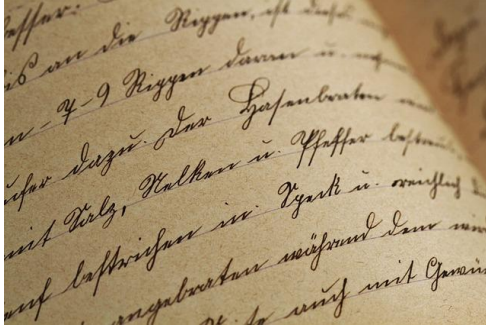 esser.
an die Rippen, ist
n - 7-9 Rippen daran u.
dazu. Der Hasenbraten
mit Salz, Nelken u. Pfeffer bestreut
bestrichen in Speck u. reichlich
angebraten während dem
auch mit Gewü